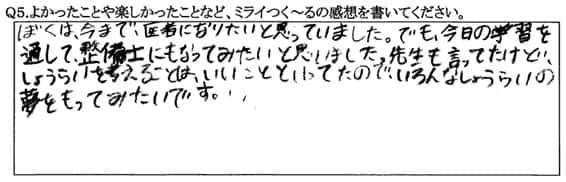 Q5.よかったことや楽しかったことなど、ミライつく～るの感想を書いてください。
ぼくは、今まで、医者になりたいと思っていました。でも、今日の学習を
通して、整備士にもなってみたいと思いました。先生も言ってたけど、
しょうらいを考えることは、いいことといってたので、いろんなしょうらいの
夢をもってみたいです。